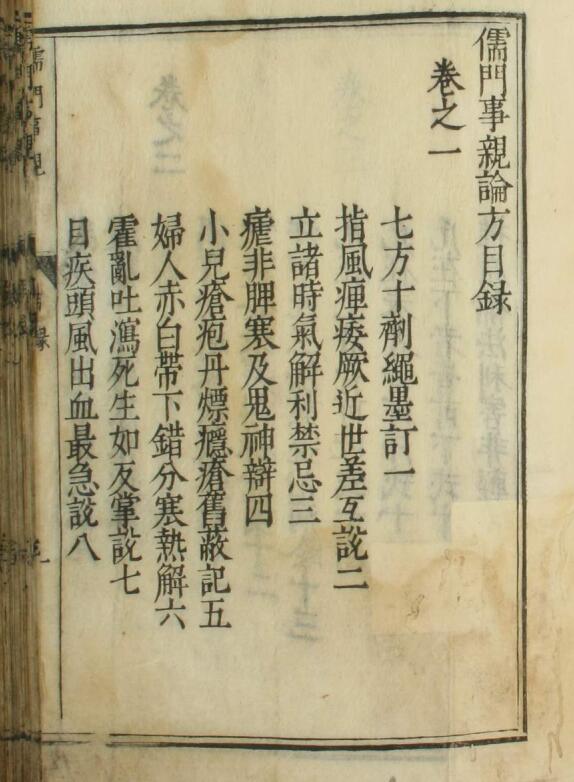 儒門事親論方目録
卷之一
七方十劑繩墨訂一
指風痺痿厥近世差互說二
立諸時氣解利禁忌三
瘧非脾寒及鬼神辯四
小兒瘡疱丹熛癮瘡舊蔽記五
婦人赤白帶下錯分寒熱解六
霍亂吐瀉死生如反掌說七
目疾頭風出血最急說八
儒門事親